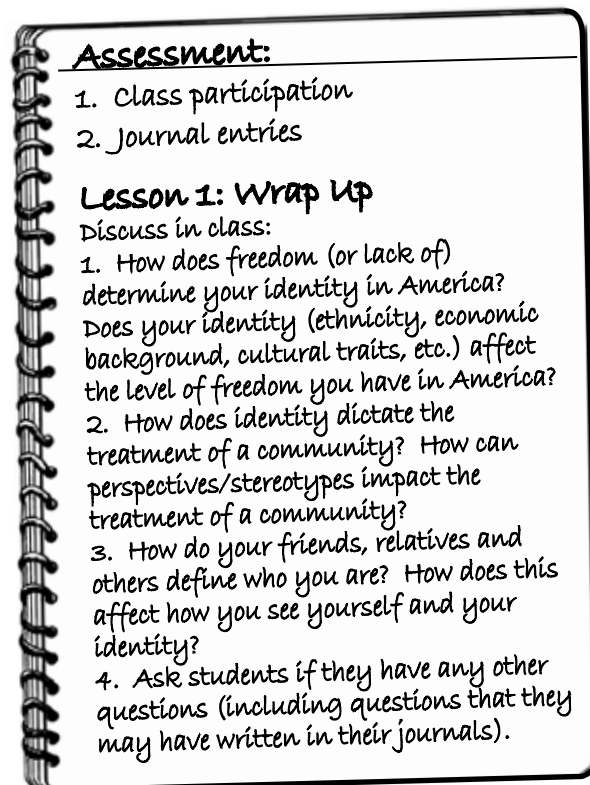 Assessment:
1. Class participation
2. Journal entries
Lesson 1: Wrap Up
Discuss in class:
1. How does freedom (or lack of)
determine your identity in America?
Does your identity (ethnicity, economic
background, cultural traits, etc.) affect
the level of freedom you have in America?
2. How does identity dictate the
treatment of a community? How can
perspectives/stereotypes impact the
treatment of a community?
3. How do your friends, relatives and
others define who you are? How does this
affect how you see yourself and your
identity?
4. Ask students if they have any other
questions (including questions that they
may have written in their journals).